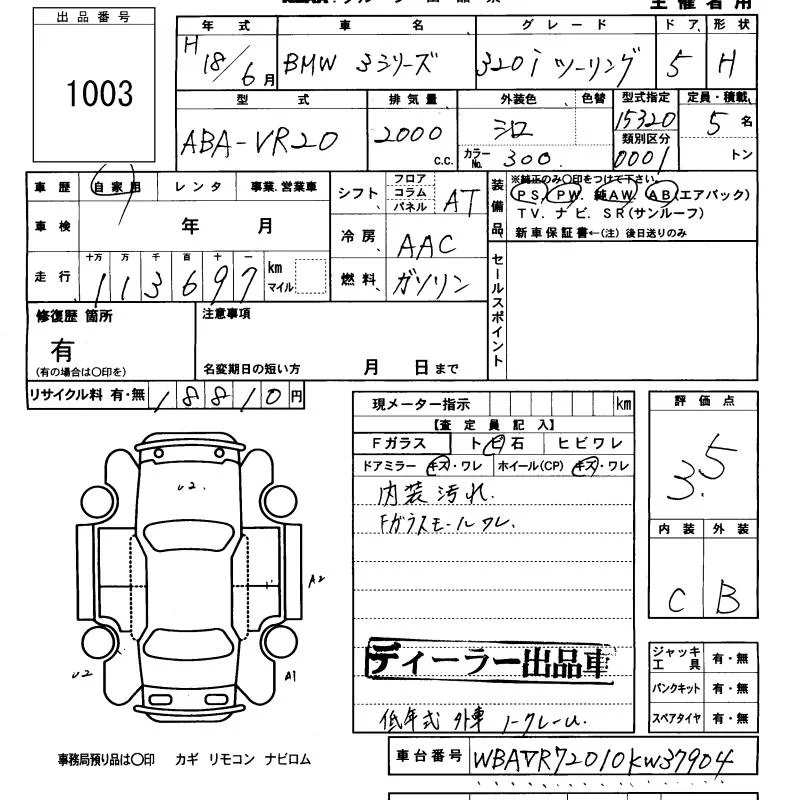 主催者用
出品番号
1003
年式 車名 グレード ドア 形状
H18/6月 BMW 3シリーズ 320i ツーリング 5 H
型式 排気量 外装色 色替 型式指定 定員・積載
ABA-VR20 2000 c.c. シロ 15320 5名
カラーNo. 300 類別区分 0001 トン
車歴 自家用 レンタ 事業.営業車
シフト フロア コラム パネル AT
装備品 ※純正のみ〇印をつけて下さい。
PS. PW. 純AW. AB(エアバック)
TV. ナビ. SR(サンルーフ)
新車保証書←(注)後日送りのみ
車検 年 月
冷房 AAC
走行 十万 万 千 百 十 一
113697 km マイル
燃料 ガソリン
セールスポイント
修復歴 箇所
有
(有の場合は〇印を)
注意事項
名変期日の短い方 月 日まで
リサイクル料 有・無 18810円
現メーター指示 km
【査定員記入】
Fガラス トビ石 ヒビワレ
ドアミラー キズ・ワレ ホイール(CP) キズ・ワレ
内装汚れ.
Fガラスモールワレ.
評価点
3.5
内装 外装
C B
U2.
A2
U2
A1
ディーラー出品車
低年式 外車 ノークレーム.
ジャッキ工具 有・無
パンクキット 有・無
スペアタイヤ 有・無
事務局預り品は〇印 カギ リモコン ナビロム
車台番号 WBAVR72010KW37904